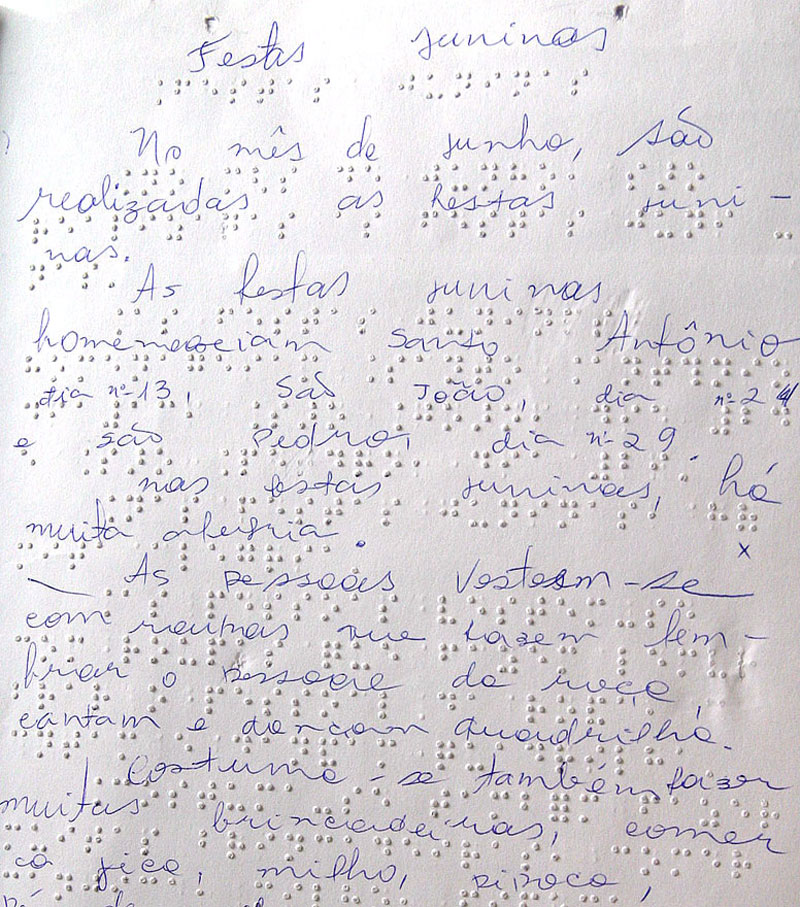 Festas juninas
No mês de junho, são
realizadas as festas juni-
nas.
As festas juninas
homenageiam Santo Antônio
dia nº 13, São João, dia nº 24
e são Pedro, dia nº 29.
nas festas juninas, há
muita alegria.
x
As pessoas vestem-se
com roupas que fazem lem-
brar o pessoal da roça,
cantam e dançam quadrilha.
Costuma-se também fazer
muitas brincadeiras, comer
cã jica, milho, pipoca,